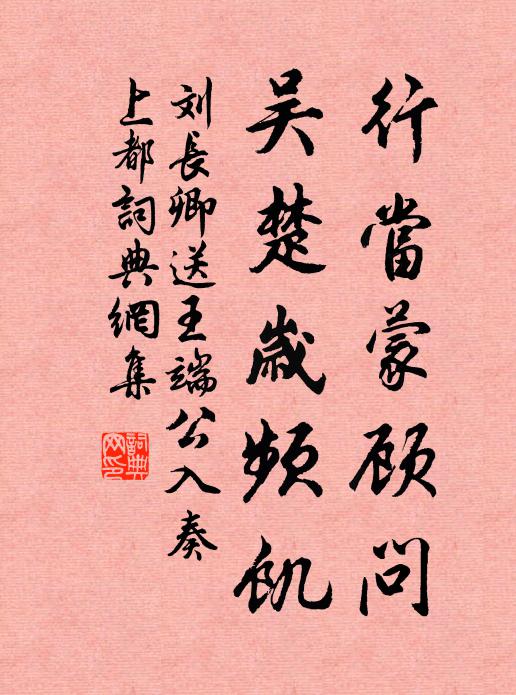 行當蒙顧問
吴楚歲頻飢
刘長卿送王端公入奏
上都詞典網集
詞典网印